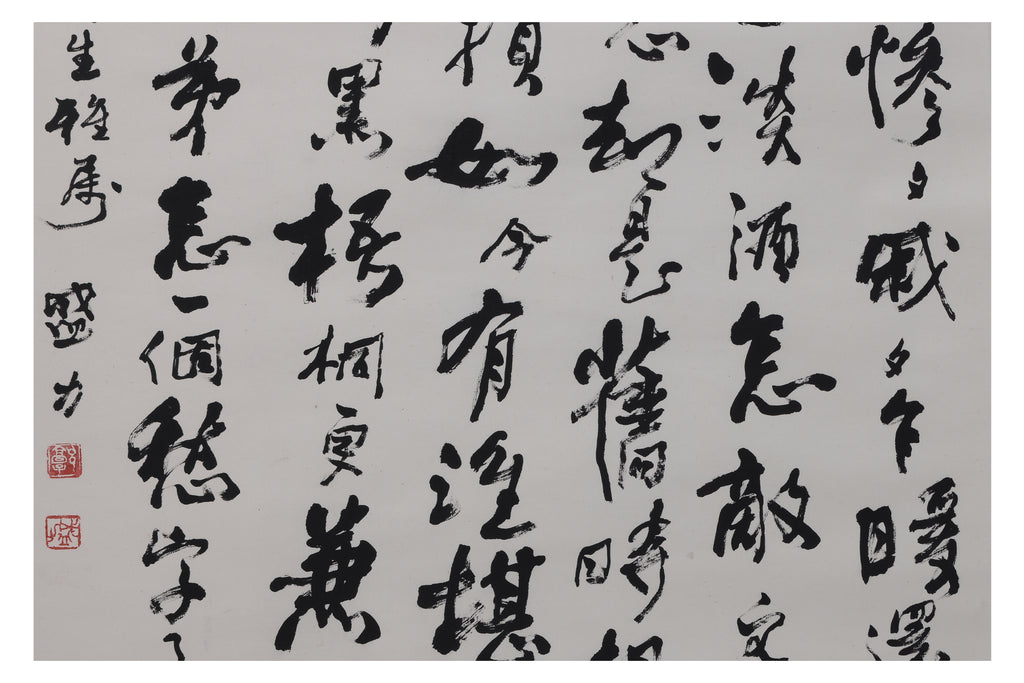 惨々戚々乍暖還
淡酒怎敵它
却是舊時相
損如今有誰堪
黑梧桐更兼
第怎一個愁字了
生雅屬
盛力